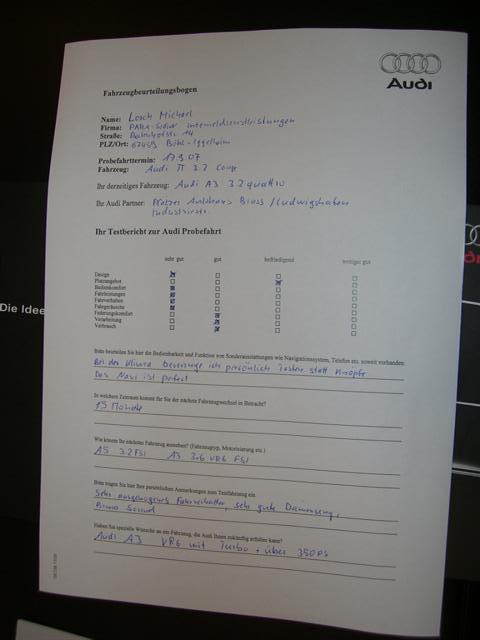 Audi
Fahrzeugbeurteilungsbogen
Name: Losch Michael
Firma:
Straße: Bahnhofstr. 14
PLZ/Ort: 67459 Böhl-Iggelheim
Probefahrttermin: 17.9.07
Fahrzeug: Audi TT 3.2 Coupe
Ihr derzeitiges Fahrzeug: Audi A3 3.2 quattro
Ihr Audi Partner: Autohaus / Ludwigshafen
Industriestr.
Ihr Testbericht zur Audi Probefahrt
sehr gut gut befriedigend weniger gut
Design
Platzangebot
Bedienkomfort
Fahrleistungen
Fahrverhalten
Fahrgeräusche
Federungskomfort
Verarbeitung
Verbrauch
Die Idee
Bitte beurteilen Sie hier die Bedienbarkeit und Funktion von Sonderausstattungen wie Navigationssystem, Telefon etc. soweit vorhanden
Bei der Klima bevorzuge ich persönlich Tasten statt Knöpfe
Das Navi ist perfekt
In welchem Zeitraum kommt für Sie der nächste Fahrzeugwechsel in Betracht?
15 Monate
Wie könnte Ihr nächstes Fahrzeug aussehen? (Fahrzeugtyp, Motorisierung etc.)
A5 3.2 FSI A3 3.6 VR6 FSI
Bitte tragen Sie hier Ihre persönlichen Anmerkungen zum Testfahrzeug ein
Sehr ausgewogenes Fahrverhalten, sehr gute Dämmung,
Sound
Haben Sie spezielle Wünsche an ein Fahrzeug, die Audi Ihnen zukünftig erfüllen kann?
Audi A3 VR6 mit Turbo + über 350 PS